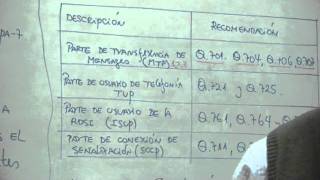 DESCRIPCIÓN RECOMENDACIÓN
PARTE DE TRANSFERENCIA DE
MENSAJES (MTP) Q.701, Q.704, Q.706, Q.707
PARTE DE USUARIO DE TELEFONÍA
TUP Q.721 y Q.725.
PARTE DE USUARIO DE LA
RDSI (ISUP) Q.761, Q.764-
PARTE DE CONEXIÓN DE
SEÑALIZACIÓN (SCCP) Q.711,
PA-7
A
S EL